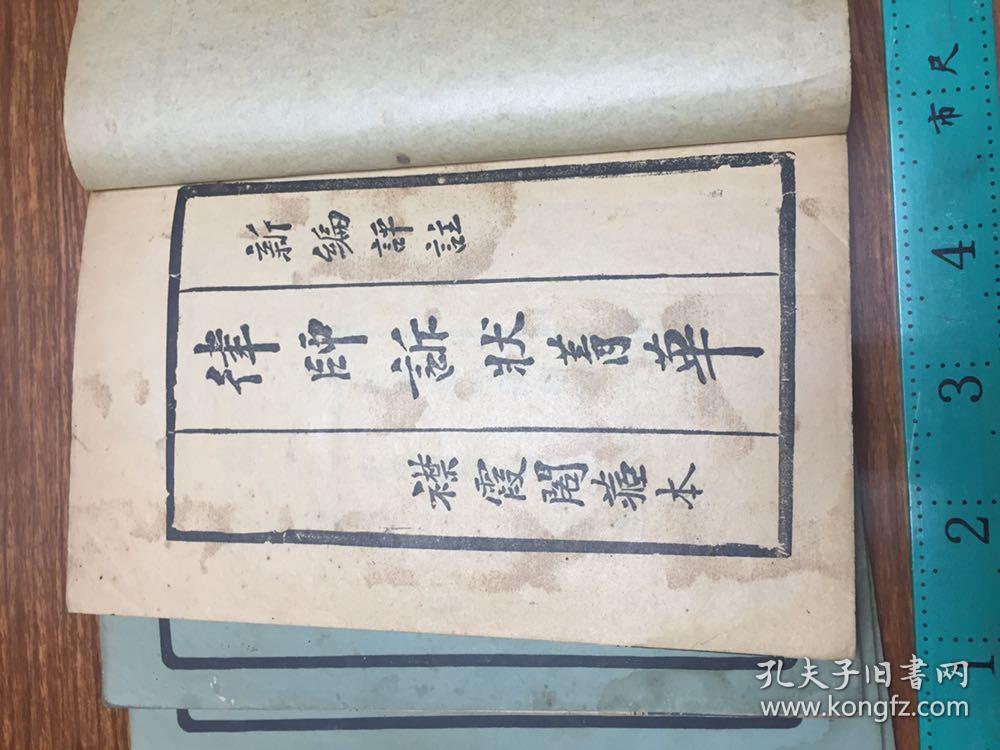 新編評註
律師訴狀菁華
襟霞閣藏本
市尺
4
3
2
1
孔夫子旧書网
www.kongfz.com